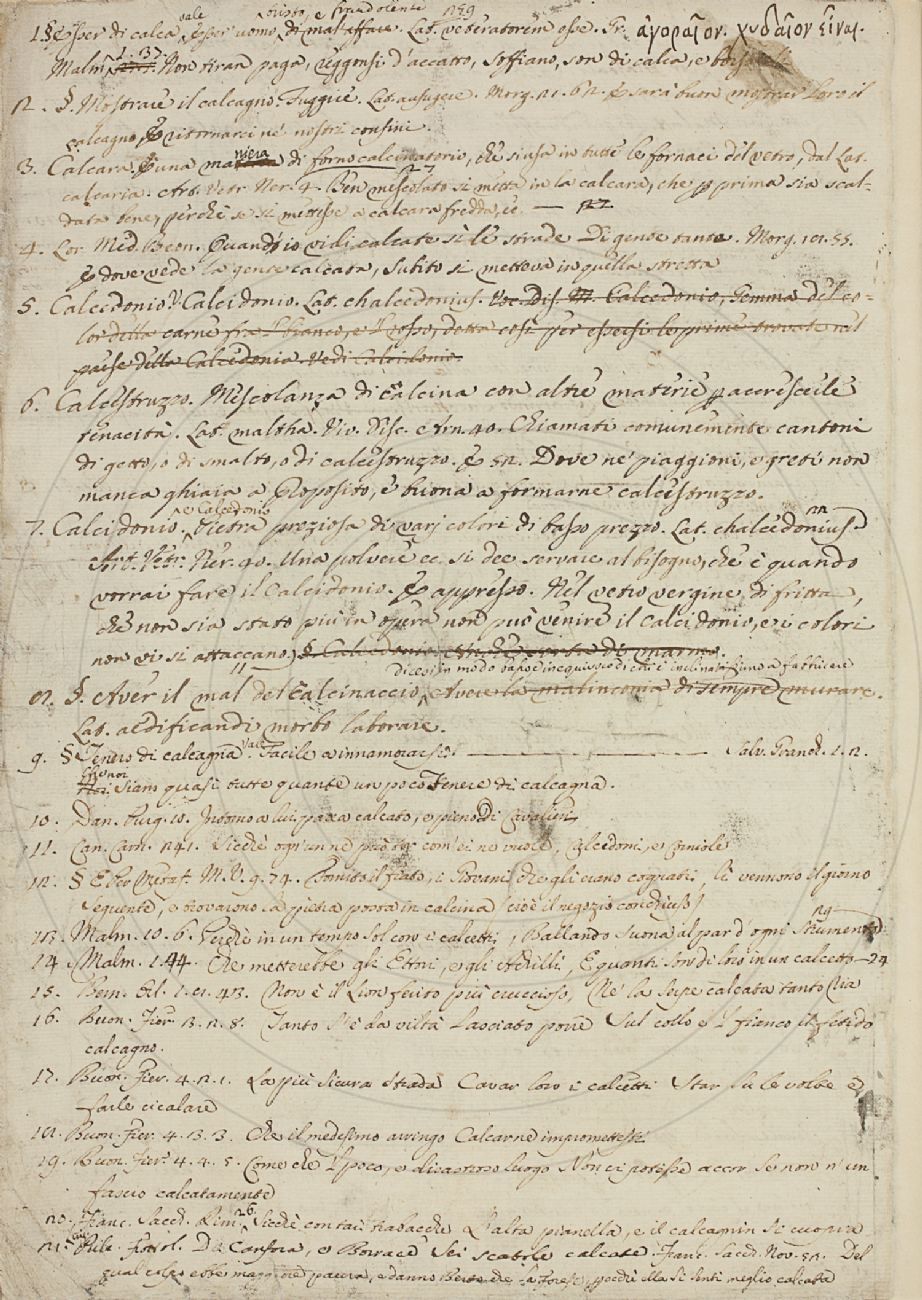 1. § Esser di calca, vale Esser uomo tristo, e fraudolente di mal affare. Lat. veteratorem esse. Gr. ἀγοραῖον. χυδαῖον εἶναι.
Malm. 1. 37. Non tiran paga, reggonsi d'accatto, Soffiano, son di calca, e
2. §. Mostrare il calcagno. Fuggire. Lat. aufugere. Morg. 21. 62. E sarà buon mostrar loro il
calcagno, E ritornarci ne' nostri confini.
3. Calcara. È una maniera di forno calcinatorio, che si usa in tutte le fornaci del vetro, dal Lat.
calcaria. Art. Vetr. Ner. 4. Ben mescolato si metta in la calcara, che prima sia scal-
data bene, perchè se si mettesse a calcara fredda, ec. —
4. Lor. Med. Beon. Quand' io vidi calcate sì le strade Di gente tante. Morg. 101. 55.
E dove vede la gente calcata, Subito si metteva in quella stretta
5. Calcedonio. V. Calcidonio. Lat. chalcedonius. Voc. Dis. Calcedonio, Gemma del co-
lor della carne fra 'l bianco, e 'l rosso, detta così per essersi le prime trovate nel
paese della Calcedonia. Vedi Calcidonio.
6. Calcestruzzo. Mescolanza di calcina con altre materie per accrescerle
tenacità. Lat. maltha. Viv. Disc. Arn. 40. Chiamati comunemente cantoni
di getto, o di smalto, o di calcestruzzo. E 52. Dove ne' piaggioni, e greti non
manca ghiaia a proposito, è buona a formarne calcestruzzo.
7. Calcidonio. e Calcedonio Pietra preziosa di varj colori di basso prezzo. Lat. chalcedonius.
Art. Vetr. Ner. 40. Una polvere ec. si dee servare al bisogno, che è quando
vorrai fare il Calcidonio. E appresso. Nel vetro vergine di fritta,
che non sia stato più in opera non può venire il calcidonio, e i colori
non vi si attaccano.
dicesi in modo basso di chi è inclinatissimo a fabbricare
8. §. Aver il mal del calcinaccio, Avere la malinconia di sempre murare.
Lat. aedificandi morbo laborare.
9. § Tenero di calcagna vale Facile a innamorarsi. — Salv. Granch. 1. 2.
Siam quasi tutte quante un poco Tenere di calcagna.
10. Dan. Purg. 10. Intorno a lui parea calcato, e pieno Di Cavalieri
11. Can. Carn. 241. Sicchè ogn'un ne può tor com' ei ne vuole, Calcedonj, e Corniole
12. § E M. V. 9. 74. Fornito il fatto, i Giovani che gli erano cognati, li vennono il giorno
seguente, e trovarono la pietra posta in calcina (cioè il negozio conchiuso)
13. Malm. 10. 6. Perchè in un tempo sol con i calcetti, Ballando suona al par d' ogni Strumento
14. Malm. 1. 44. Che metterebbe gli Ettori, e gli Achilli, E quanti son di loro in un calcetto — 24
15. Bern. Orl. 1. 21. 43. Non è il Lion ferito più cruccioso, Nè la Serpe calcata tanto ria
16. Buon. Fier. 3. 2. 8. Tanto s' è da viltà Lasciato porre Sul collo e 'l fianco il fetido
calcagno.
17. Buon. Fier. 4. 2. 1. La più sicura strada Cavar loro i calcetti Star su le volte e
farle cicalare
18. Buon. Fier. 4. 3. 3. Che il medesimo arringo Calcarne impromettesti
19. Buon. Fier. 4. 4. 5. Come che 'l poco, e disastroso luogo Non ci potesse accor se non 'n un
fascio calcatamente
20. Franc. Sacch. Rim. 26. Sicchè con tai trabacche L'alta pianella, e il calcagnin si cuopra
21. Di Canfora, e Borrace Sei scatole calcate. Franc. Sacch. Nov. 52. Del
qual colpo ebbe maggiore paura, e danno Berto che la forese, perchè ella si sentì meglio calcata